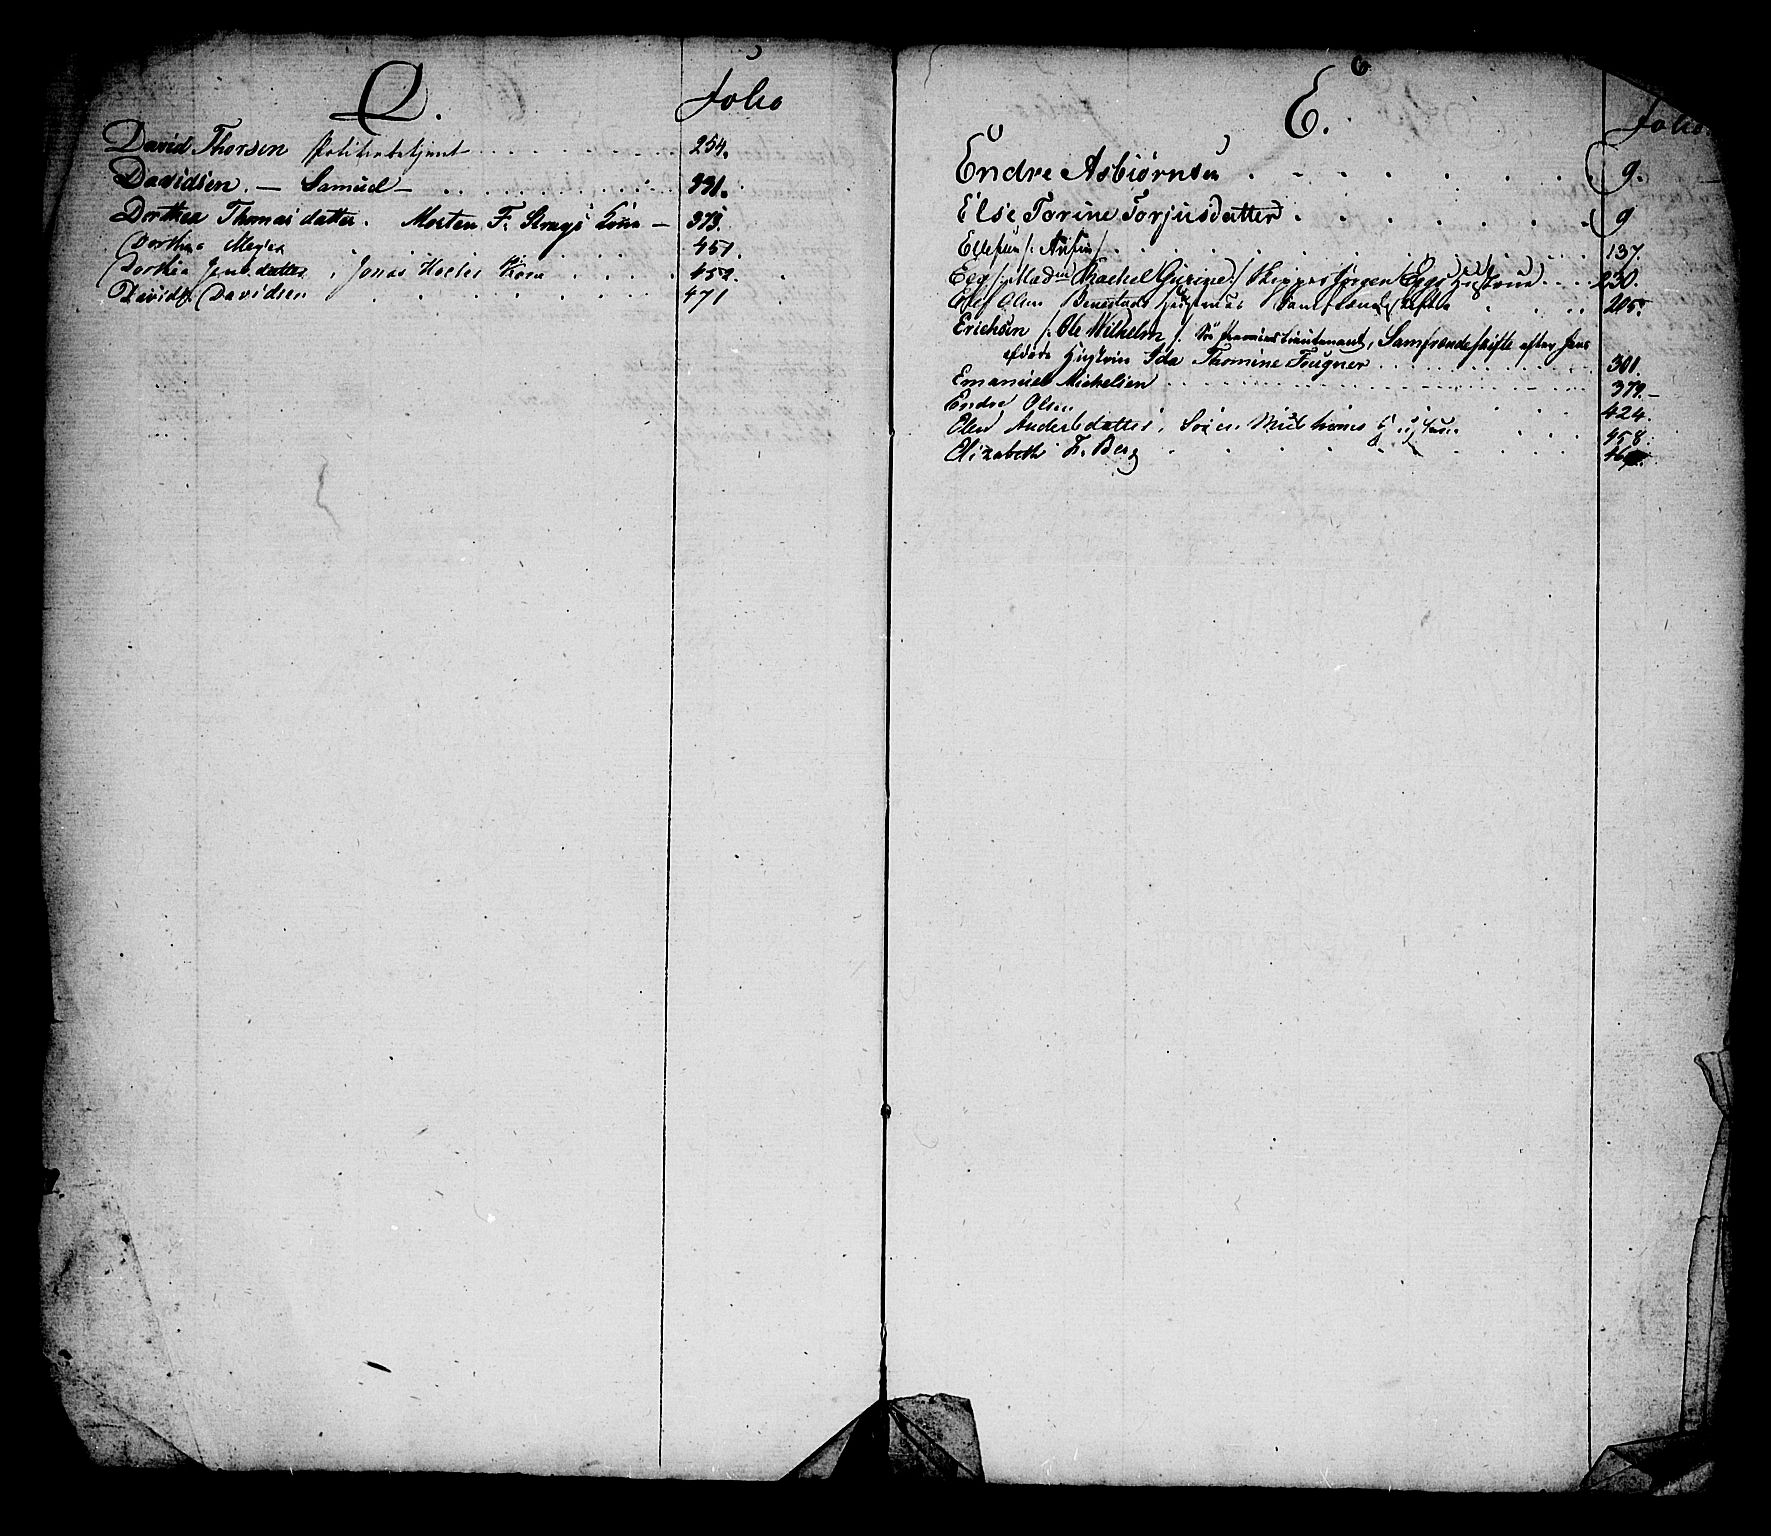 D. Folio
David Thorsen Politiebetjent 254.
Davidsen. — Samuel — 331.
Dorthea Thomasdatter. Morten F. Krags Kone — 373.
Dorthea Meyer 451.
Dorthea Jensdatter, Jonas Holtes Kone 452.
David Davidsen 471
6
E. Folio
Endre Asbiørnsen 9.
Else Torine Torjusdatter 9
Ellefsen 137.
Elg Rachel Gurine / Skipper Jørgen Elgs 230.
Elef Olsen Hustrues Samfrændeskifte 205.
Erichsen /: Ole Wilhelm :/ Premierlieutenant, Samfrændeskifte efter hans
afdøde Hustru Ida Thomine Fougner 301.
Emanuel Michelsen 379.
Endre Olsen 424.
Elen Andersdatter, Søren 458.
Elizabeth F. Berg